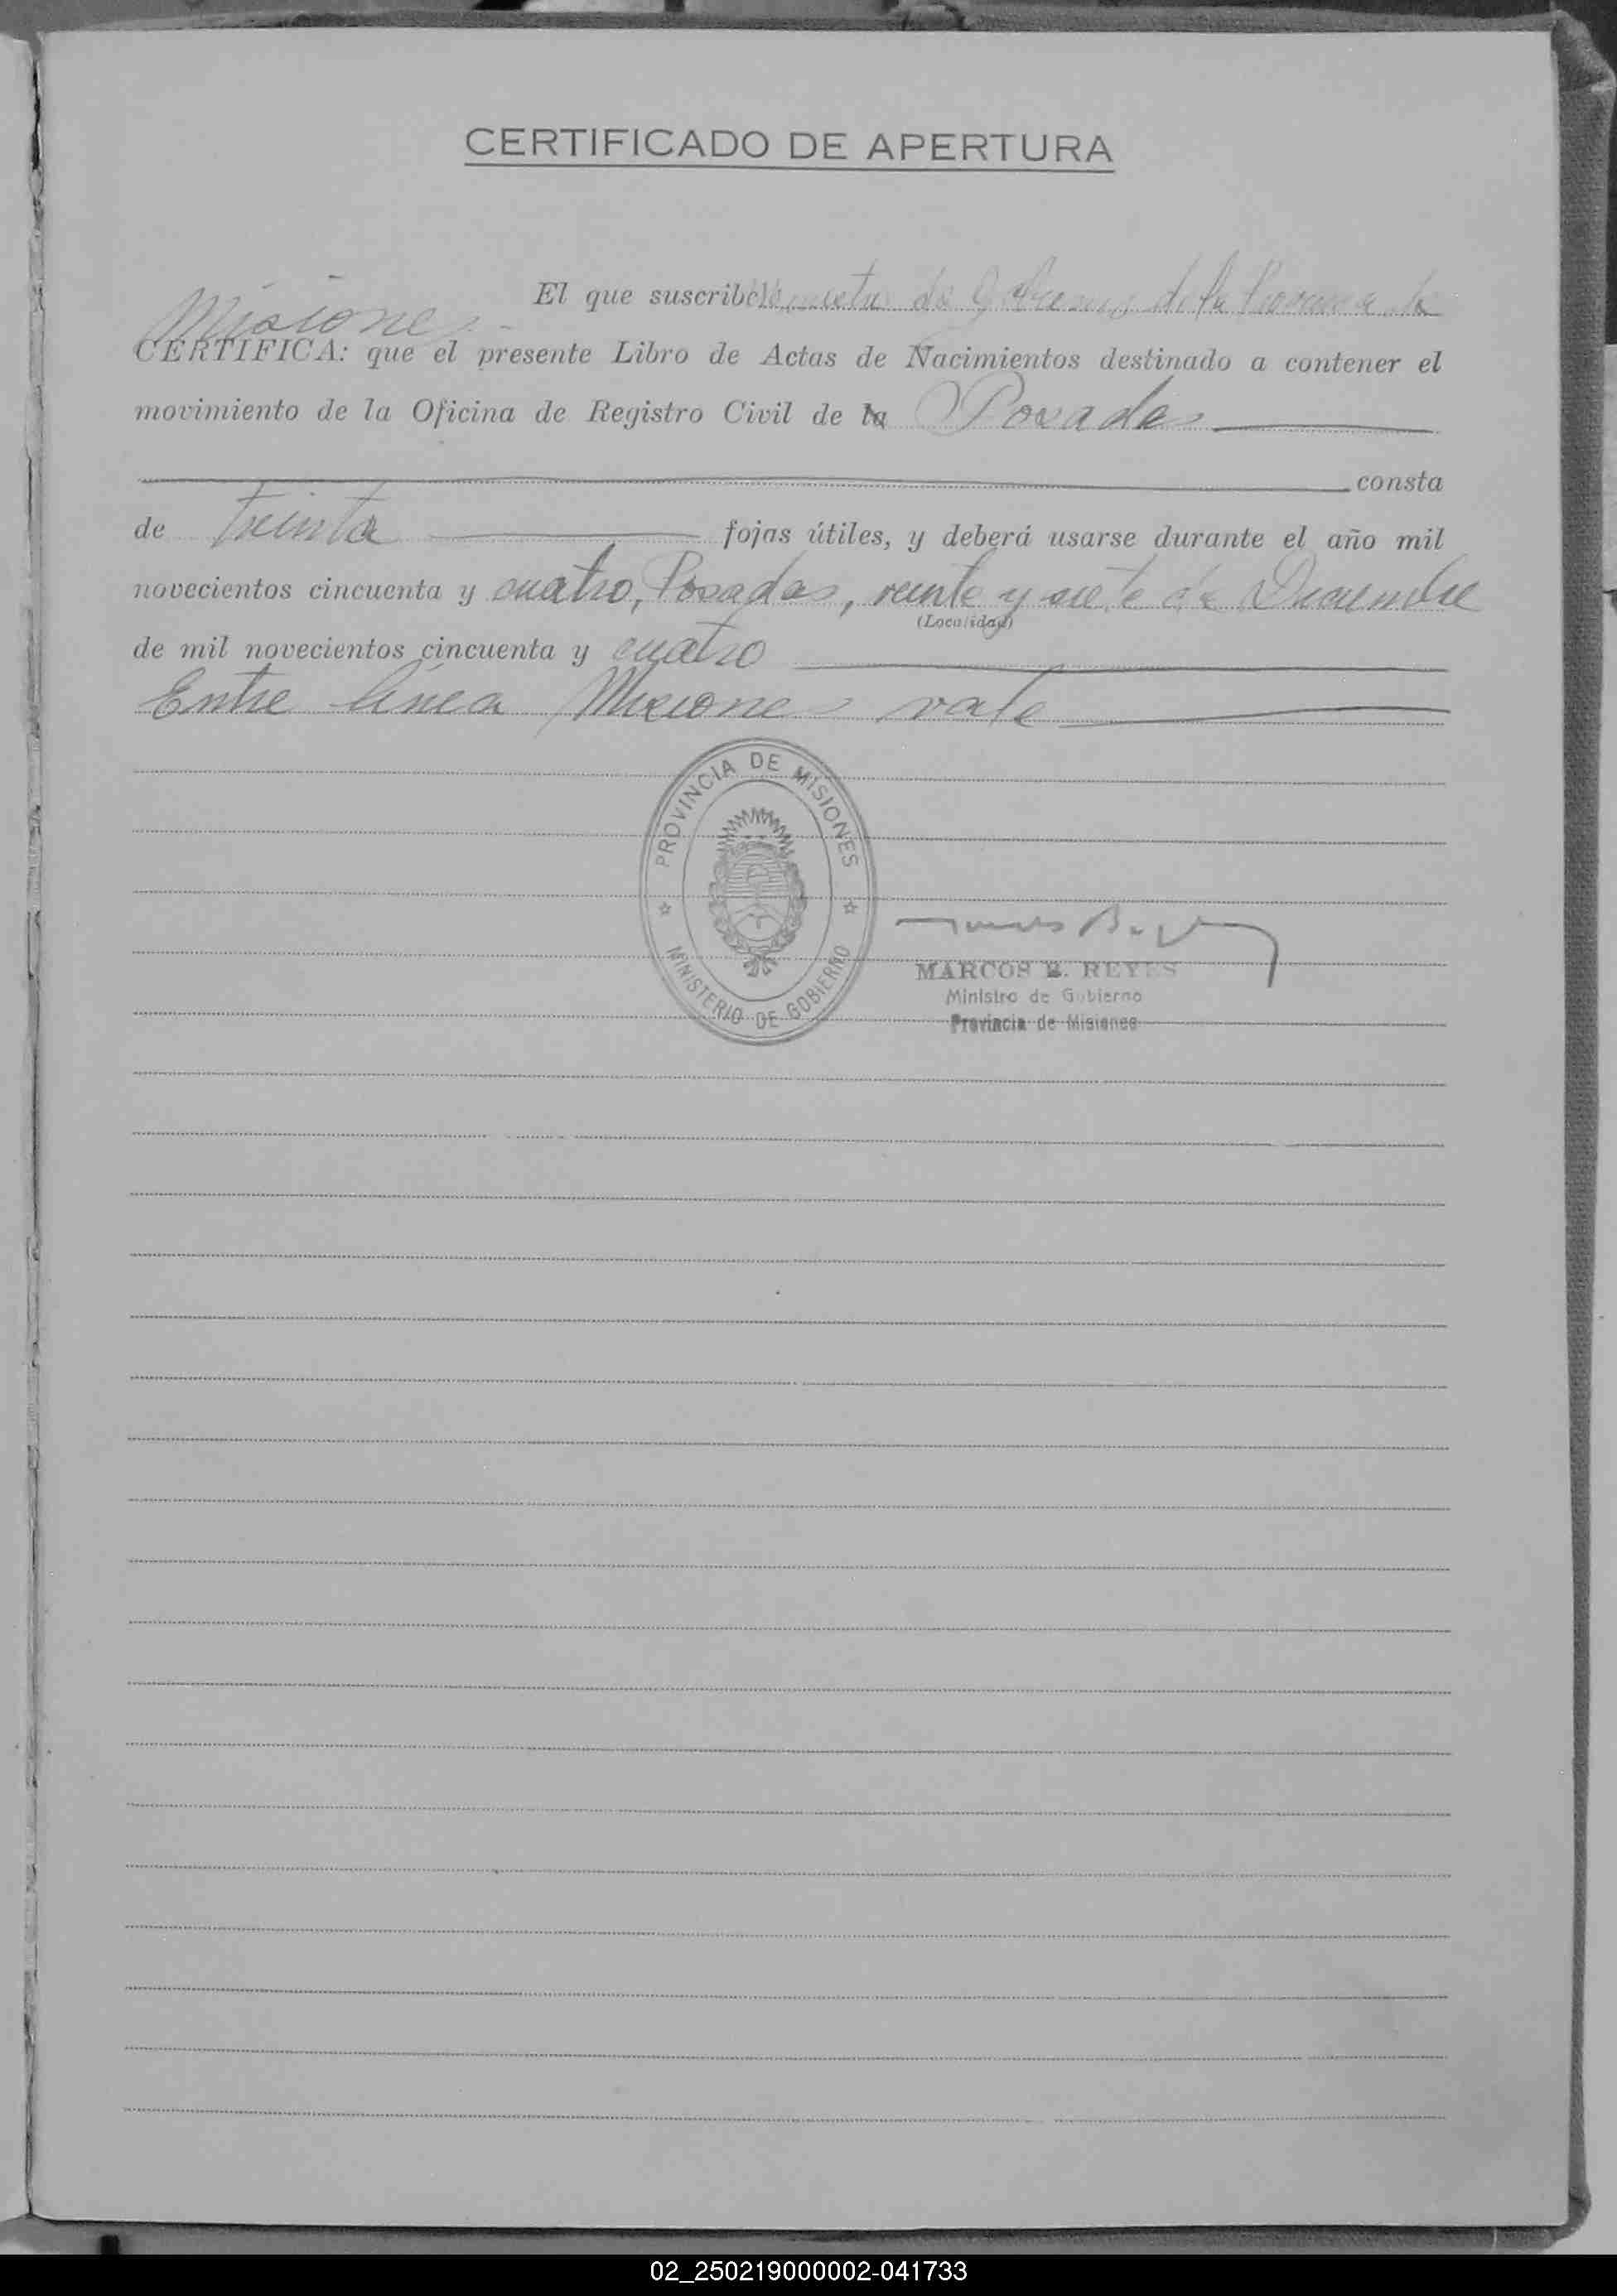 CERTIFICADO DE APERTURA
El que suscribe Ministro de Gobierno de la Provincia de
Misiones.-
CERTIFICA: que el presente Libro de Actas de Nacimientos destinado a contener el
movimiento de la Oficina de Registro Civil de la Posadas
consta
de treinta fojas útiles, y deberá usarse durante el año mil
novecientos cincuenta y cuatro, Posadas, veinte y siete de Diciembre
(Localidad)
de mil novecientos cincuenta y cuatro
Entre línea Misiones vale
PROVINCIA DE MISIONES
MINISTERIO DE GOBIERNO
MARCOS B. REYES
Ministro de Gobierno
Provincia de Misiones
02_250219000002-041733